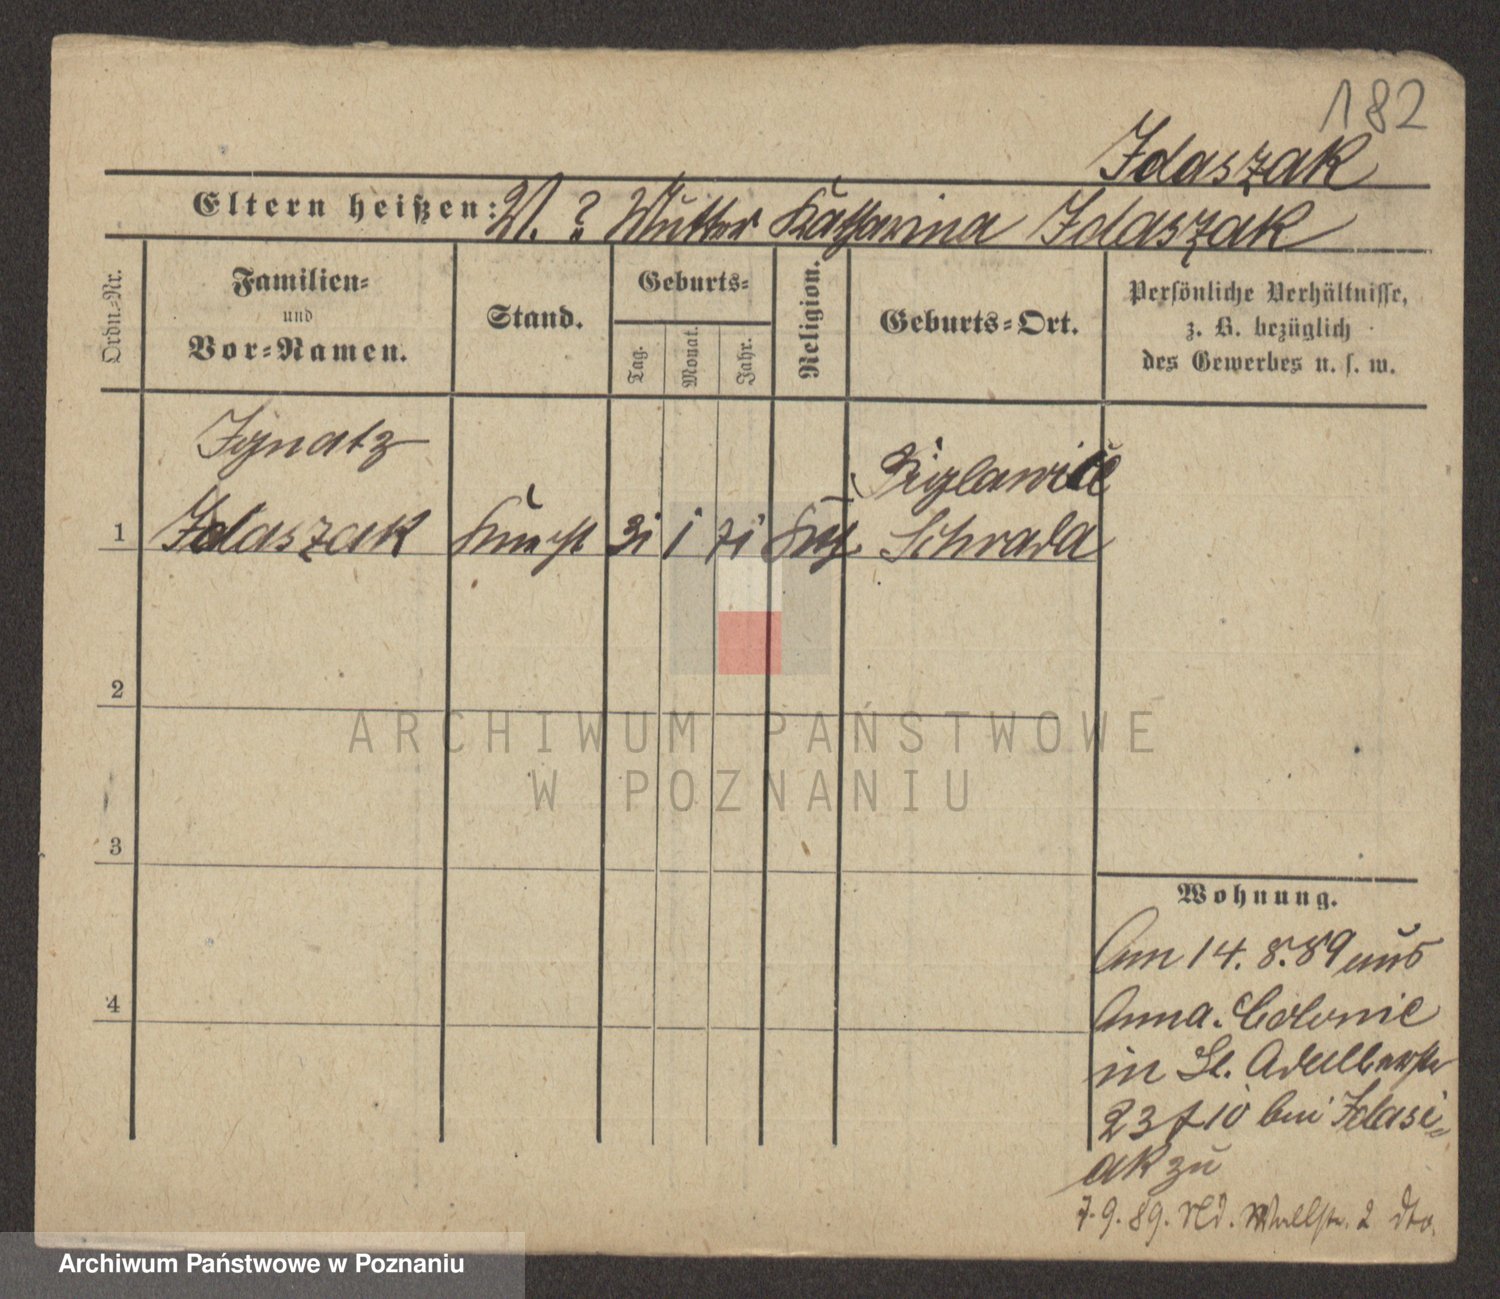 182
Idaszak
Eltern heißen: V. ? Mutter Katharina Idaszak
Ordn.-Nr.
Familien-
und
Vor-Namen.
Stand.
Geburts-
Tag.
Monat.
Jahr.
Religion.
Geburts-Ort.
Persönliche Verhältnisse,
z. B. bezüglich
des Gewerbes u. s. w.
Ignatz
1 Idaszak Knecht 31 1 71 Kath.
Schroda
2
3
4
Wohnung.
Am 14. 8. 89 aus
Anna. Colonie
in St. Adalbertstr
23 f 10 bei Idasi-
ak zu
7. 9. 89. Nd. Wallstr. 2 dto.
ARCHIWUM PAŃSTWOWE
W POZNANIU
Archiwum Państwowe w Poznaniu